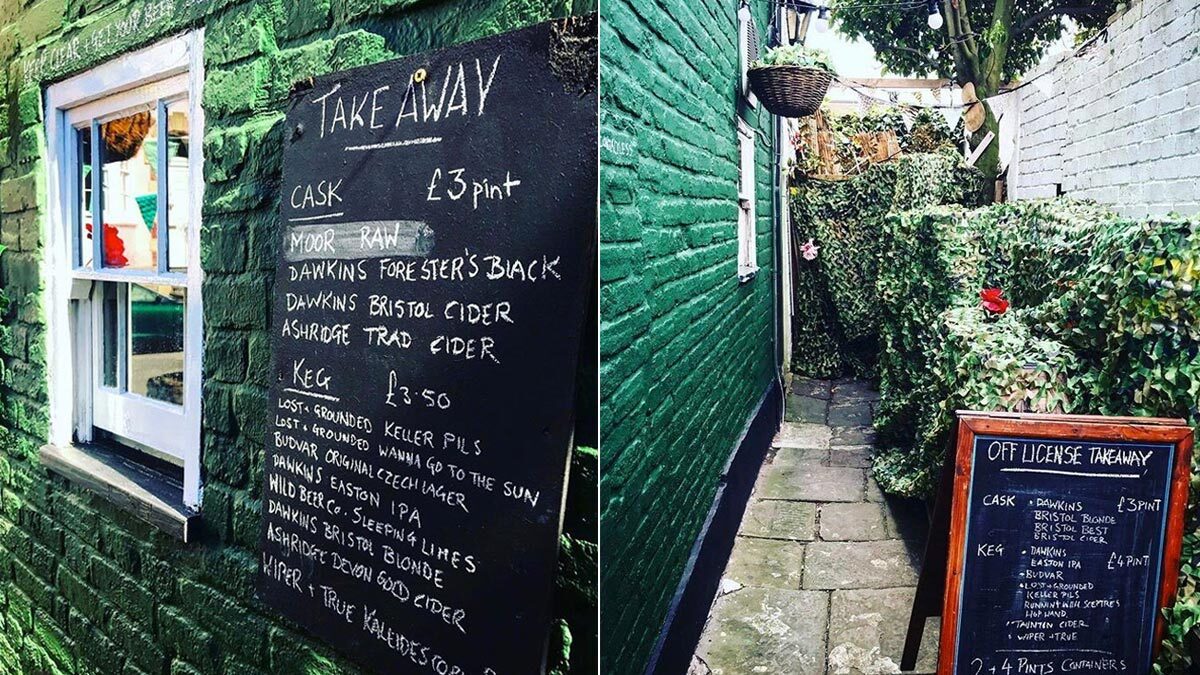 CLEAR + GET YOUR BEER
TAKE AWAY
CASK £3 pint
MOOR RAW
DAWKINS FORESTER'S BLACK
DAWKINS BRISTOL CIDER
ASHRIDGE TRAD CIDER
KEG £3.50
LOST + GROUNDED KELLER PILS
LOST + GROUNDED WANNA GO TO THE SUN
BUDVAR ORIGINAL CZECH LAGER
DAWKINS EASTON IPA
WILD BEER CO. SLEEPING LIMES
DAWKINS BRISTOL BLONDE
ASHRIDGE DEVON GOLD CIDER
WIPER + TRUE
OFF LICENSE TAKEAWAY
CASK • DAWKINS £3 PINT
BRISTOL BLONDE
BRISTOL BEST
BRISTOL CIDER
KEG • DAWKINS
EASTON IPA £4 PINT
• BUDVAR
• LOST + GROUNDED
KELLER PILS
RUNNING WITH SCEPTRES
HOP HAND
• TAUNTON CIDER
• WIPER + TRUE
2 + 4 PINTS CONTAINERS